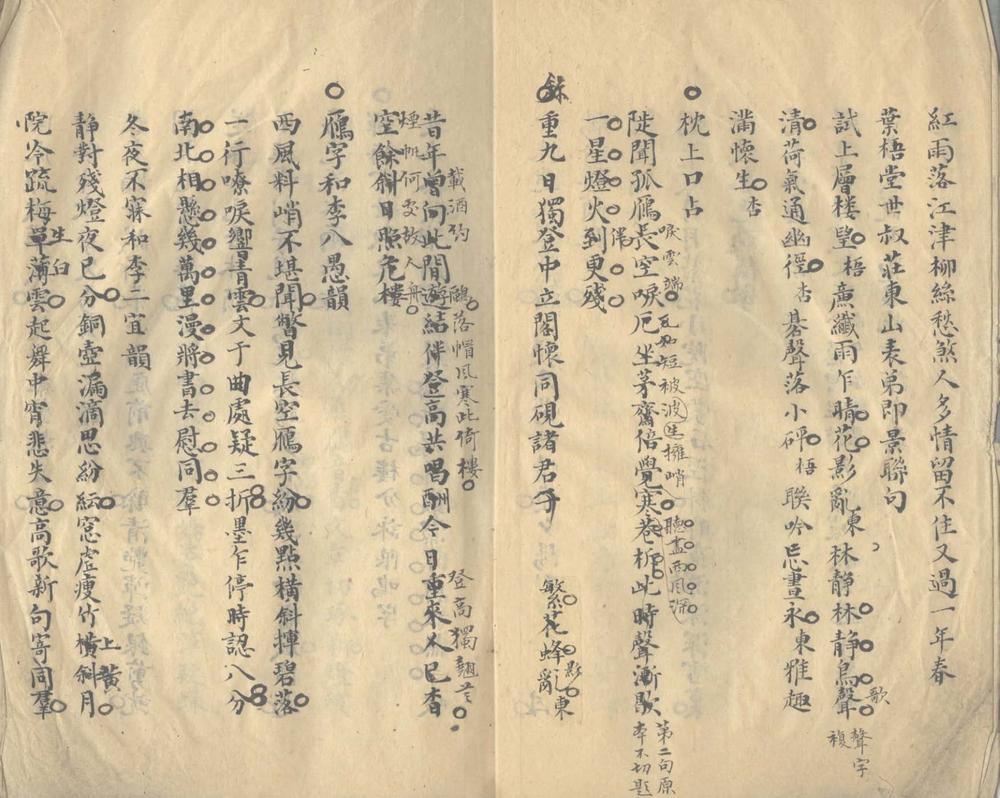 紅雨落江津柳絲愁煞人多情留不住又過一年春
葉梧堂世叔莊東山表弟即景聯句
試上層楼望梧廉纖雨乍晴花影亂東林靜林靜鳥聲
歌
聲字
複
清荷氣通幽徑杏碁聲落小砰梧聯吟忘晝永東雅趣
滿懷生杏
枕上口占
陡聞孤雁長空唳厄坐茅齋倍覺寒巷柝此時聲漸歇
唳雲端
瓦和短被
擁哨
聽盡雨風深
第二句原
本不切題
一星燈火到更殘
重九日獨登中立閣懷同硯諸君子
繁花蜂亂東
影
昔年曾向此間遊結伴登高共唱酬今日重來人已杳
載酒約
落帽風寒此倚樓
登高獨翹首
空餘斜日照危樓
煙帆何處故人舟
雁字和李八愚韻
西風料峭不堪聞瞥見長空雁字紛幾點橫斜摶碧落
一行嘹唳響青雲文于曲處疑三折墨乍停時認八分
南北相懸幾萬里漫將書去慰同羣
冬夜不寐和李二宜韻
靜對殘燈夜已分銅壺漏滴思紛紜窓虛瘦竹橫斜月
上黃
院冷疏梅單薄雲起舞中宵悲失意高歌新句寄同羣
生白